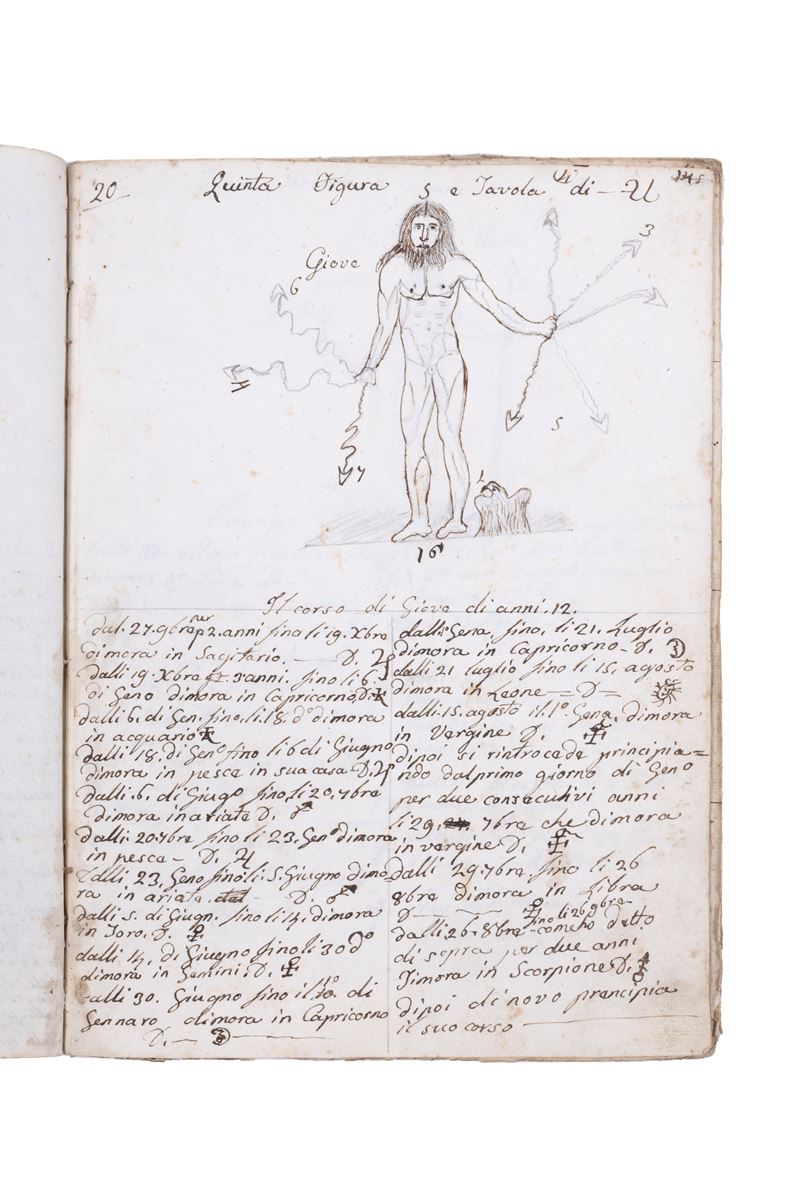 20
Quinta Figura 5 e Tavola di — ♃
Giove
3
6
4
5
7
16
Il corso di Giove di anni. 12.
dal. 27. 9bre p 2. anni fino li 19. Xbre
dimora in Sagitario. — D. ♃
dalli 19. Xbre 3 anni. fino li 6.
di Geno dimora in Capricorno D.
dalli 6. di Gen. fino. li. 18. do dimora
in acquario
dalli 18. di Geno fino li 6 di Giugno
dimora in pesce in sua casa D. ♃
dalli. 6. di Giugo fino, li 20. 7bre
dimora inariate D. ♂
dalli 20. 7bre fino li 23. Geno dimora
in pesce — D. ♃
Dalli. 23. Geno fino. li. 5. Giugno dimo
ra in ariate. — D. ♂
dalli 5. di Giugn. fino li 14. dimora
in Toro. D. ♀
dalli 14. di Giugno fino li 30 do
dimora in Gemini D. ☿
dalli 30. Giugno fino il di
Gennaro dimora in Capricorno
D. —
dalli Gena. fino. li 21. Luglio
dimora in Capricorno — D. 3
dalli 21 luglio fino li 15. agosto
dimora in Leone — D —
dalli. 15. agosto il. 1o Gena. dimora
in Vergine D. ☿
dipoi si rintrocede principia=
ndo dal primo giorno di Geno
per due consecutivi anni
li 29. 7bre che dimora
in vergine D. ☿
dalli 29. 7bre. fino li 26
8bre dimora in Libra
D — ♀ fino li 26 9bre
dalli 26. 8bre — come detto
di sopra per due anni
Dimora in Scorpione D.
dipoi di novo prencipia
il suo corso —